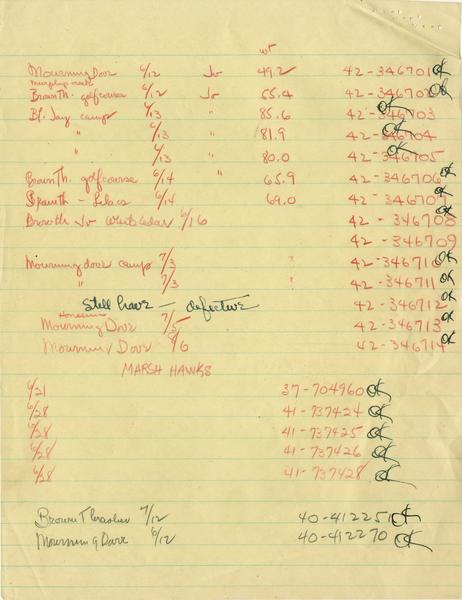 wt
Mourning Dove 6/12 Juv 49.2 42-346701 OK
Brown Th. golf course 6/12 Juv 55.4 42-346702 OK
Bl. Jay camp 6/13 " 85.6 42-346703 OK
" 6/13 " 81.9 42-346704 OK
6/13 " 80.0 42-346705 OK
Brown Th. golf course 6/14 " 65.9 42-346706 OK
Brown th - Lilacs 6/14 " 69.0 42-346707 OK
Brow th Juv White Cedar 6/16 42-346708 OK
42-346709
Mourning dove camp 7/3 " 42-346710 OK
" 7/3 " 42-346711 OK
Still have - defective 42-346712 OK
Mourning Dove 7/5 42-346713 OK
Mourning Dove 7/6 42-346714 OK
MARSH HAWKS
6/21 37-704960 OK
6/28 41-737424 OK
6/28 41-737425 OK
6/28 41-737426 OK
6/28 41-737428 OK
Brown Thrasher 7/12 40-412251 OK
Mourning Dove 6/12 40-412270 OK